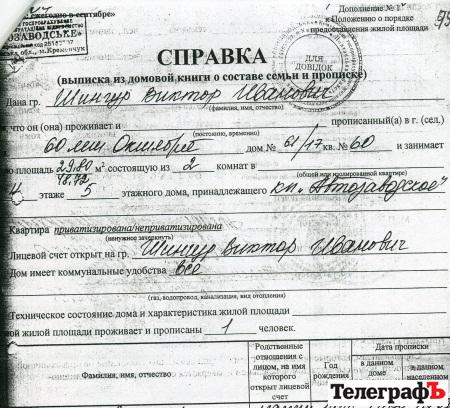 ежегодно в сентябре»
Дополнение №1
к Положению о порядке
предоставления жилой площади
ОЗАВОДСЬКЕ"
м. Кременчук
ДЛЯ
ДОВІДОК
СПРАВКА
(выписка из домовой книги о составе семьи и прописке)
Дана гр. Шингур Виктор Иванович
(фамилия, имя, отчество)
что он (она) проживает и прописанный(а) в г. (сел.)
(постоянно, временно)
60 лет Октября дом № 61/17 кв. № 60 и занимает
ю площадь 29.80 м² состоящую из 2 комнат в
18.72
(общей или изолированной квартире)
4 этаже 5 этажного дома, принадлежащего КП „Автозаводское"
Квартира приватизирована/неприватизирована
(ненужное зачеркнуть)
Лицевой счет открыт на гр. Шингур Виктор Иванович
Дом имеет коммунальные удобства все
(газ, водопровод, канализация, вид отопления)
Техническое состояние дома и характеристика жилой площади
ой жилой площади проживает и прописаны 1 человек.
Фамилия, имя, отчество
Родственные отношения с лицом, на имя которого открыт лицевой счет
Год рождения
Дата прописки
в данном доме
в данном населенном
ТелеграфЪ